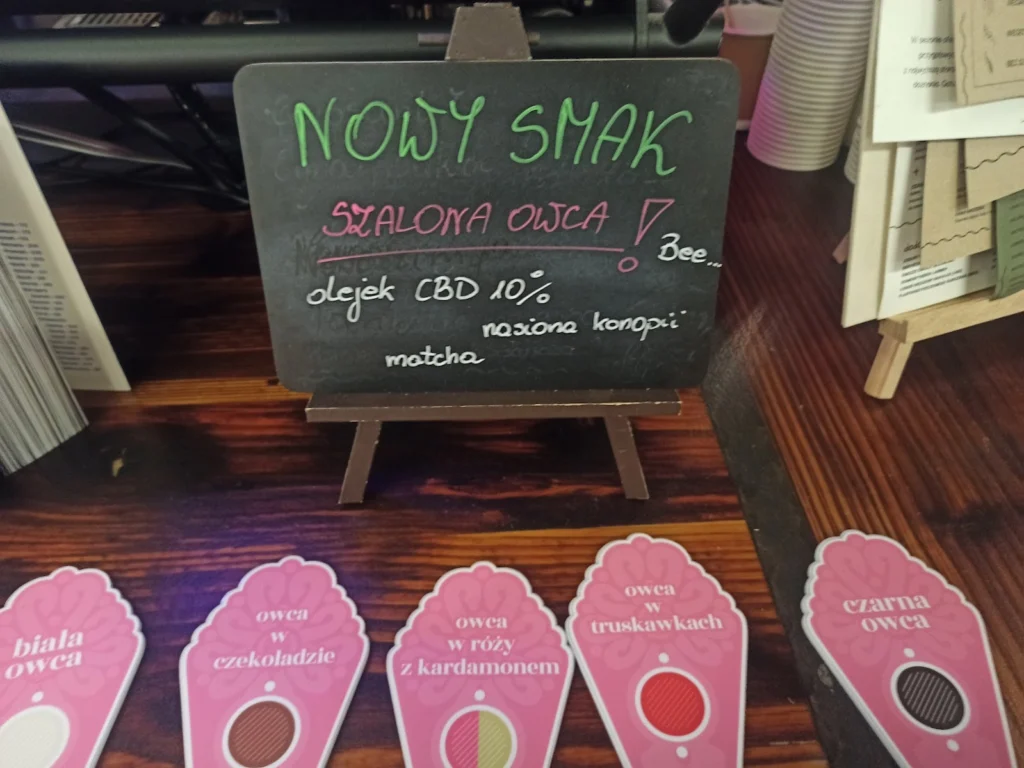 NOWY SMAK
SZALONA OWCA!
Bee...
olejek CBD 10%
nasiona konopii
matcha
biała
owca
owca
w
czekoladzie
owca
w róży
z kardamonem
owca
w
truskawkach
czarna
owca